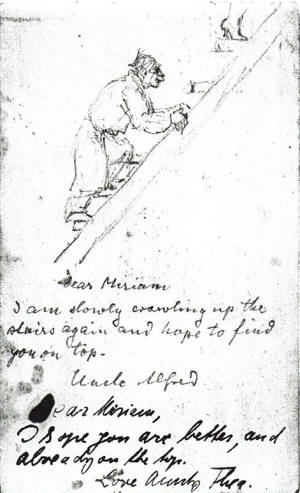 Dear Miriam
I am slowly crawling up the
stairs again and hope to find
you on top.
Uncle Alfred
Dear Miriam,
I hope you are better, and
already on the top.
Love Aunty Thea.